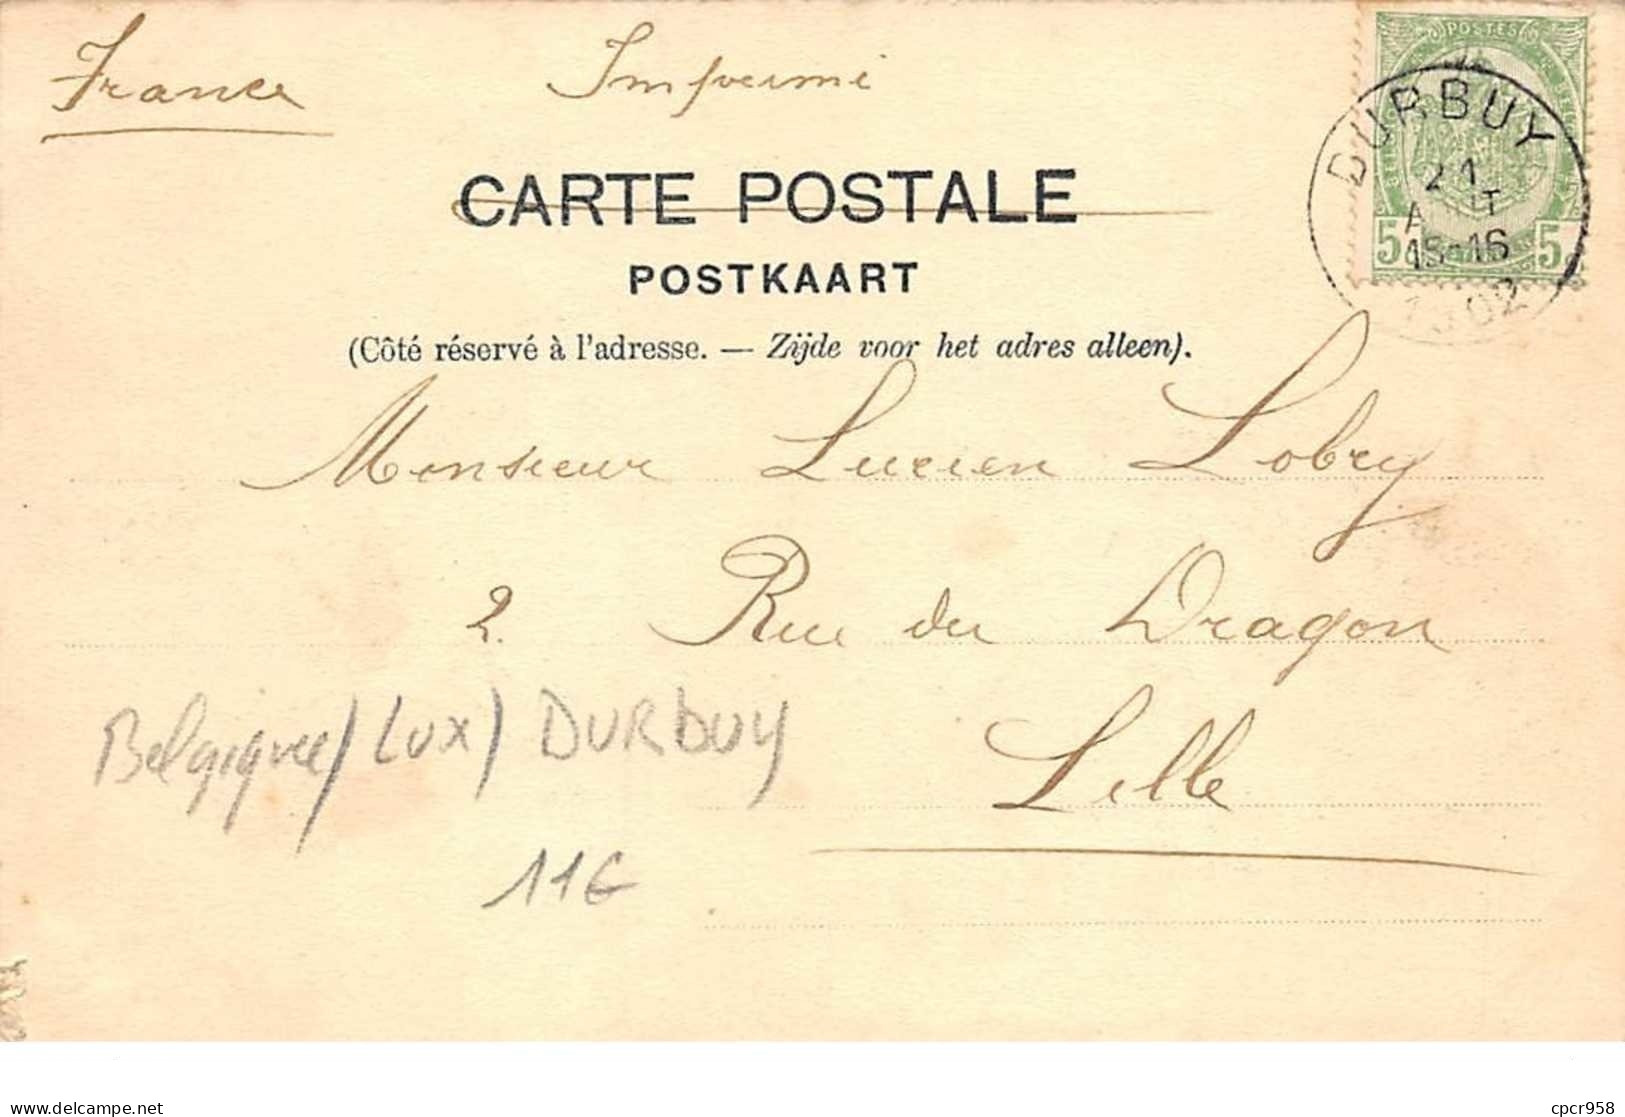 France Imprimé
POSTES
DURBUY
21
AOUT
15-16
1902
5 5
CARTE POSTALE
POSTKAART
(Côté réservé à l'adresse. — Zijde voor het adres alleen).
Monsieur Lucien Lobry
2. Rue du Dragon
Lille
Belgique/Lux/DURBUY
11€
delcampe.net
cpcr958